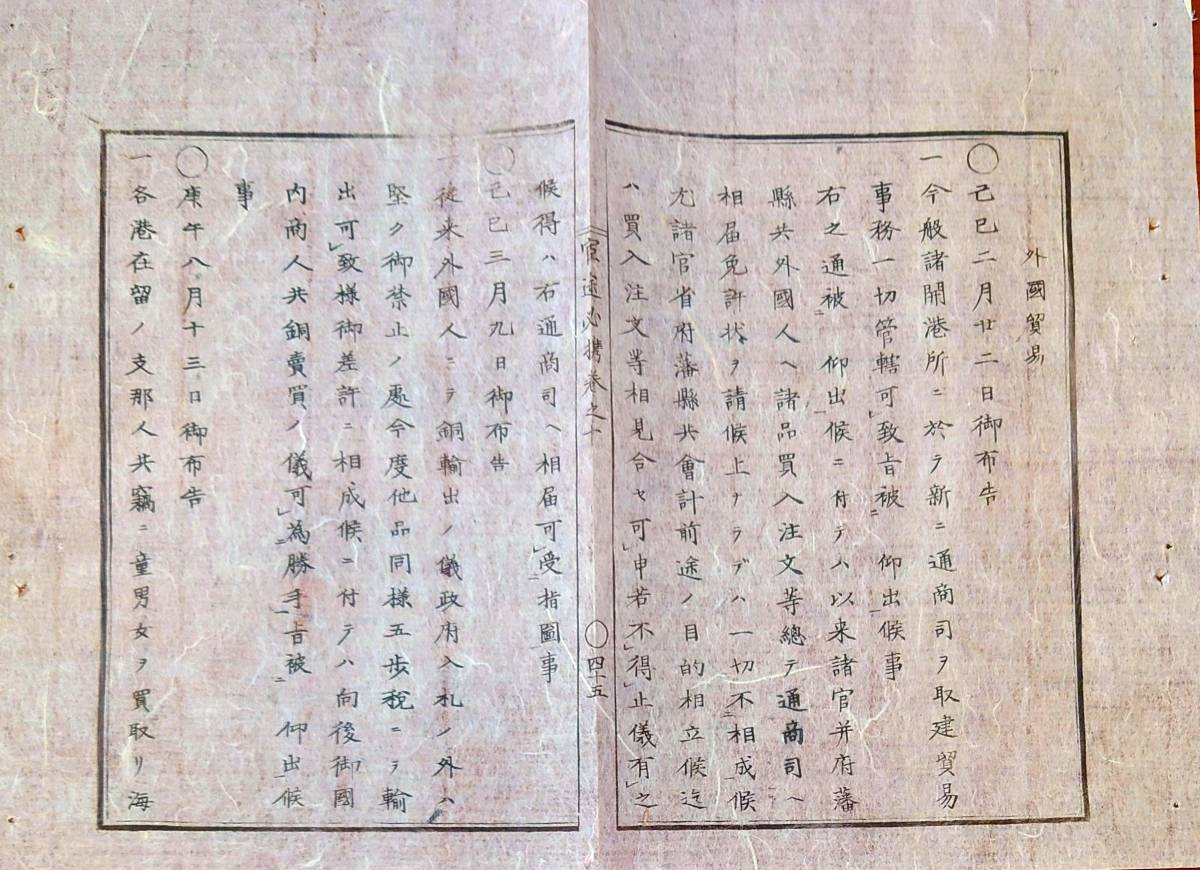 外國貿易
〇己巳二月廿二日御布告
一今般諸開港所ニ於テ新ニ通商司ヲ取建貿易
事務一切管轄可致旨被 仰出候事
右之通被 仰出候ニ付テハ以来諸官并府藩
縣共外國人ヘ諸品買入注文等總テ通商司ヘ
相届免許状ヲ請候上ナラデハ一切不相成候
尤諸官省府藩縣共會計前途ノ目的相立候迄
ハ買入注文等相見合セ可申若不得止儀有之
官途必携卷之十
〇四十五
候得ハ右通商司ヘ相届可受指圖事
〇己巳三月九日御布告
一従来外國人ニテ銅輸出ノ儀政府入札ノ外ハ
堅ク御禁止ノ處今度他品同様五歩税ニテ輸
出可致様御差許ニ相成候ニ付テハ向後御國
内商人共銅賣買ノ儀可為勝手旨被 仰出候
事
〇庚午八月十三日御布告
一各港在留ノ支那人共竊ニ童男女ヲ買取リ海